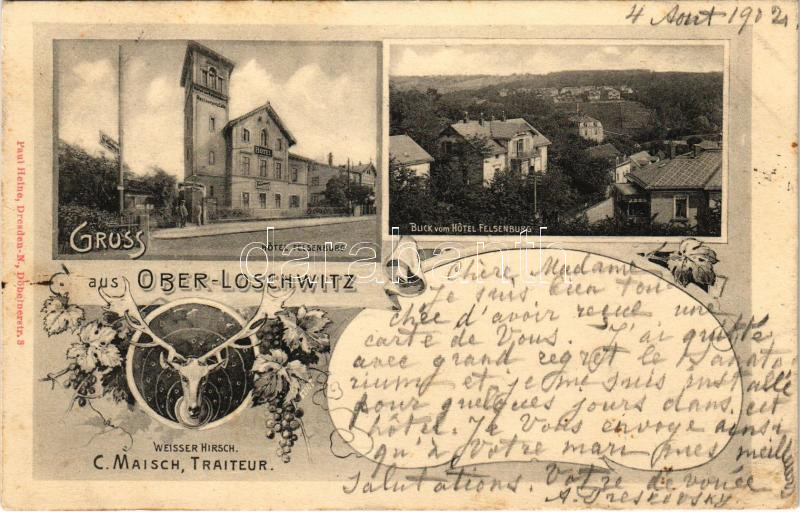 4 Aout 1902
HOTEL
GRUSS
HÔTEL FELSENBURG
BLICK VOM HÔTEL FELSENBURG
aus OBER-LOSCHWITZ
darabanth
Chère Madame
Je suis bien tou
chée d'avoir reçue une
carte de Vous. J'ai quitté
avec grand regret le Sanato
rium et je me suis installée
pour quelques jours dans cet
hôtel. Je Vous envoye ainsi
qu'à Votre mari mes meill
Salutations. Votre de vouée
WEISSER HIRSCH.
C. MAISCH, TRAITEUR.
Paul Heine, Dresden-N., Döbelnerstr. 3